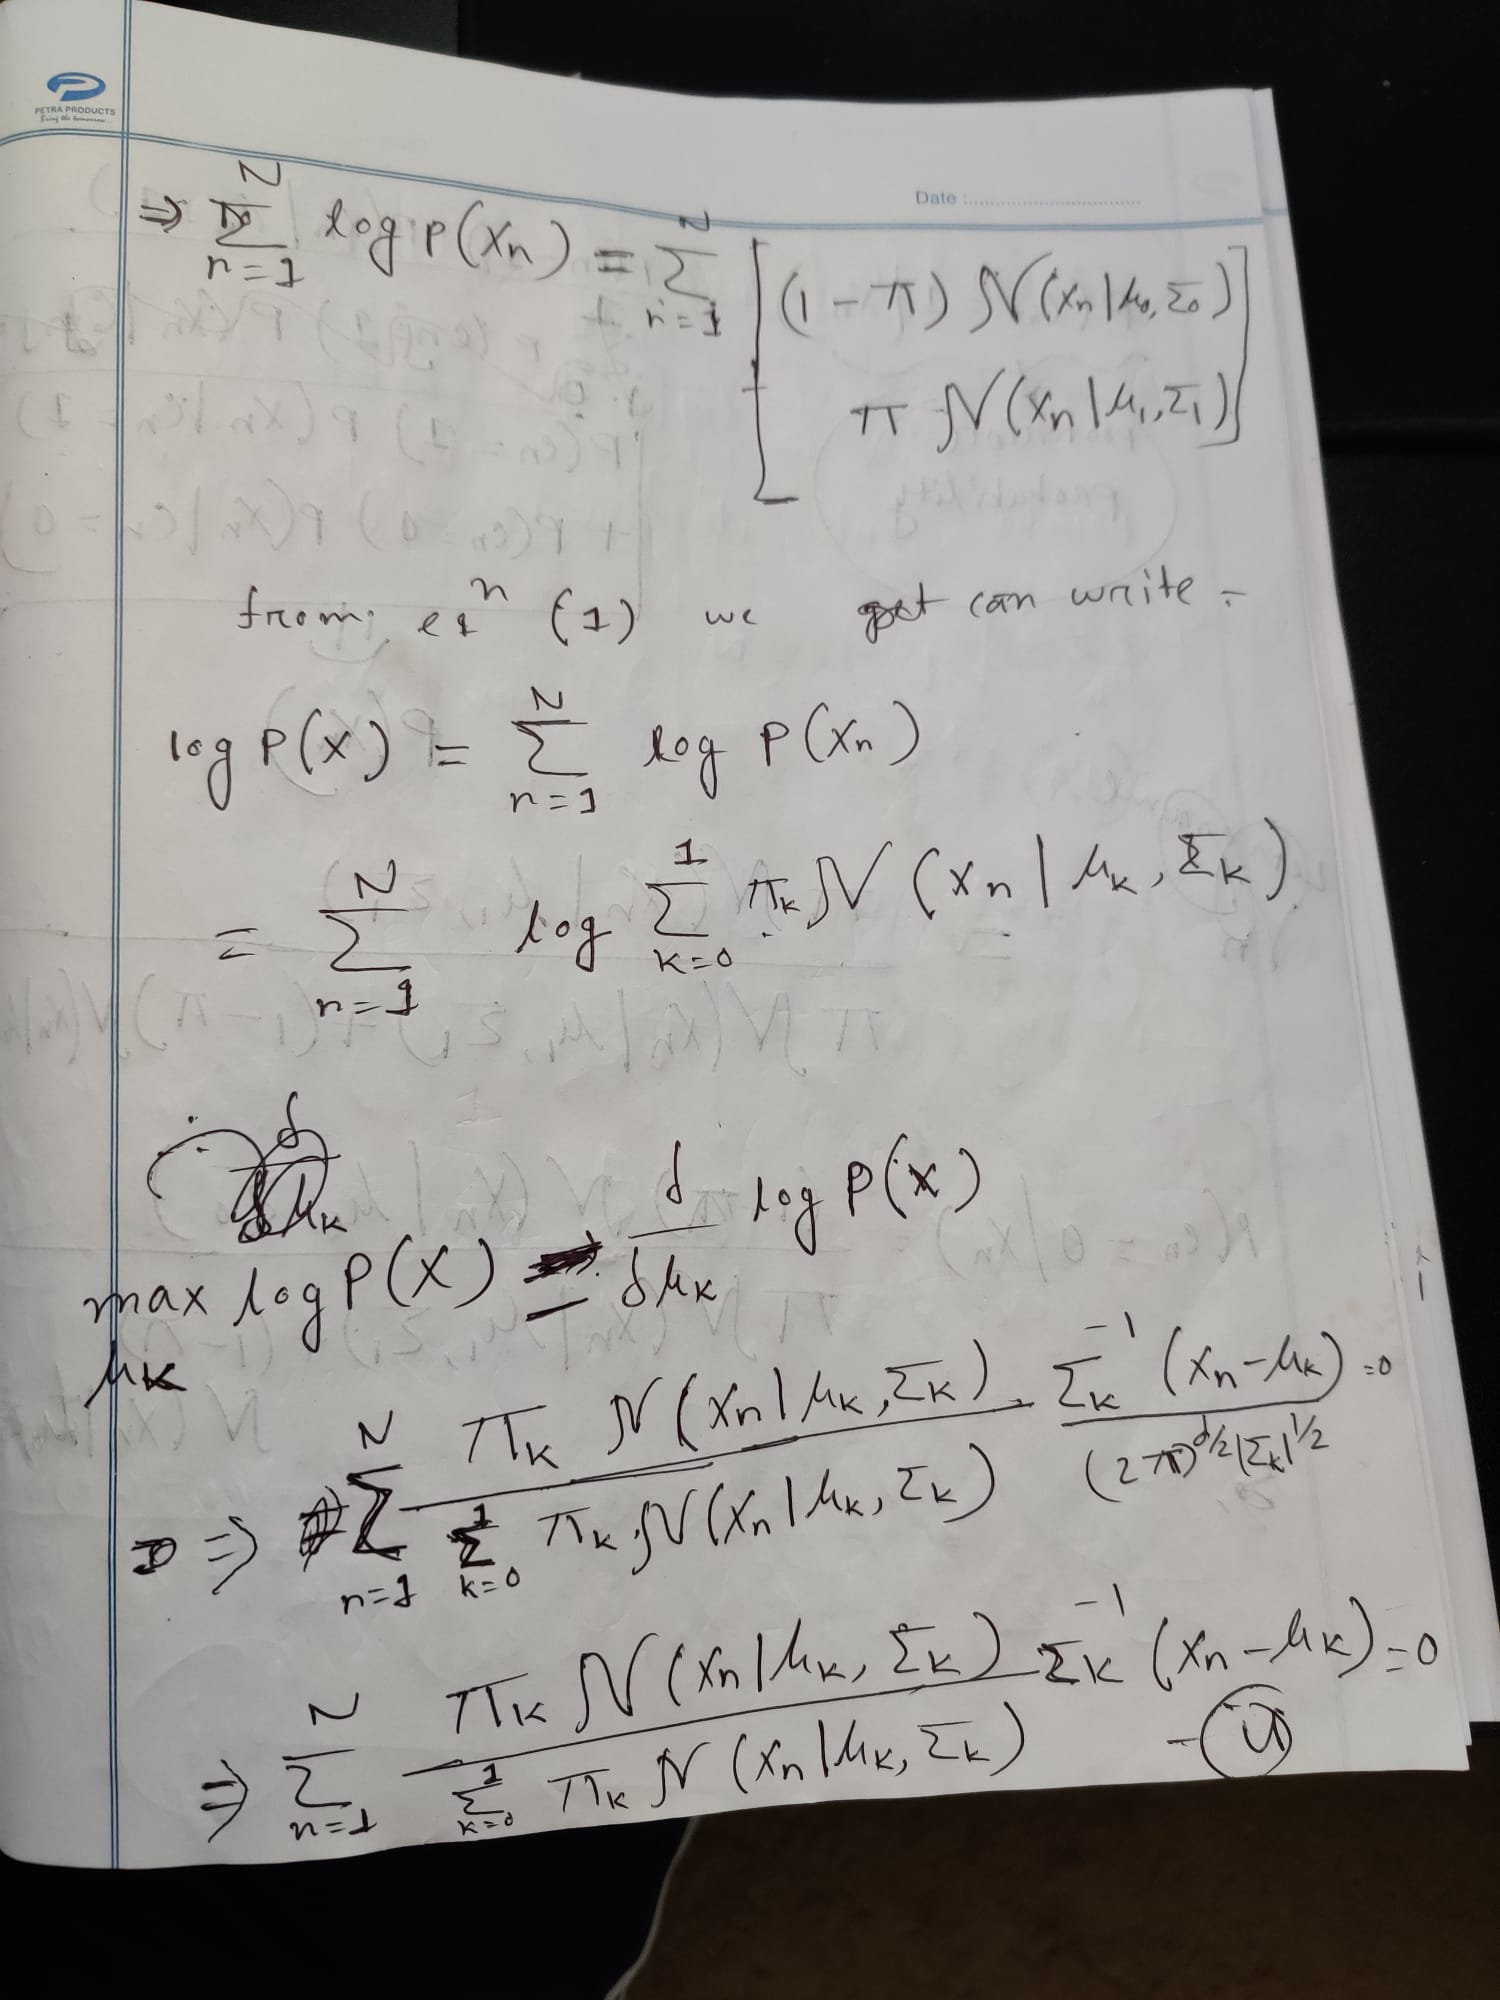 PETRA PRODUCTS
Bring the tomorrow
Date :
⇒ Σ_{n=1}^{N} log P(Xn) = Σ_{n=1}^{N} [(1 - π) N(Xn | μ0, Σ0)
+ π N(Xn | μ1, Σ1)]
from eqⁿ (1) we can write -
log P(X) = Σ_{n=1}^{N} log P(Xn)
= Σ_{n=1}^{N} log Σ_{k=0}^{1} πk N(Xn | μk, Σk)
max_{μk} log P(X) = δ/δμk log P(X)
⇒ Σ_{n=1}^{N} πk N(Xn | μk, Σk) / Σ_{k=0}^{1} πk N(Xn | μk, Σk) · Σk^{-1} (Xn - μk) / (2π)^{d/2} |Σk|^{1/2} = 0
⇒ Σ_{n=1}^{N} πk N(Xn | μk, Σk) / Σ_{k=0}^{1} πk N(Xn | μk, Σk) Σk^{-1} (Xn - μk) = 0